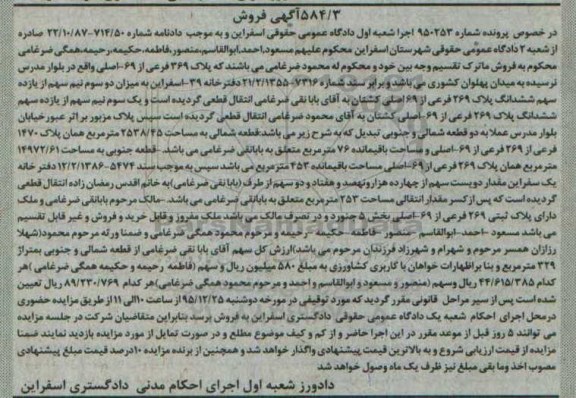 ۵۸۴/۳آگهی فروش
در خصوص پرونده شماره ۹۵۰۲۵۳ اجرا شعبه اول دادگاه عمومی حقوقی اسفراین و به موجب دادنامه شماره ۷۱۴/۵۰-۲۲/۱۰/۸۷ صادره
از شعبه ۲ دادگاه عمومی حقوقی شهرستان اسفراین محکوم علیهم مسعود،احمد،ابوالقاسم،منصور،فاطمه،حکیمه،رحیمه،همگی ضرغامی
محکوم به فروش ماترک تقسیم وجه بین خود و محکوم له محمود ضرغامی می باشند که پلاک ۲۶۹ فرعی از ۶۹-اصلی واقع در بلوار مدرس
نرسیده به میدان پهلوان کشوری می باشد و برابر سند شماره ۷۳۱۶-۲۱/۲/۱۳۵۵ دفترخانه ۳۹-اسفراین به میزان دو سوم نیم سهم از یازده
سهم ششدانگ پلاک ۲۶۹ فرعی از ۶۹ اصلی کشتان به آقای بابا نقی ضرغامی انتقال قطعی گردیده است و یک سوم نیم سهم از یازده سهم
ششدانگ پلاک ۲۶۹ فرعی از ۶۹-اصلی کشتان به آقای محمود ضرغامی انتقال قطعی گردیده است سپس پلاک مزبور بر اثر عبور خیابان
بلوار مدرس عملا به دو قطعه شمالی و جنوبی تبدیل که به شرح زیر می باشد:قطعه شمالی به مساحت ۲۵۳۸/۴۵ مترمربع همان پلاک ۱۴۷۰
فرعی از ۲۶۹ فرعی از ۶۹-اصلی و مساحت باقیمانده ۷۶ مترمربع متعلق به باباتقی ضرغامی می باشد. -قطعه جنوبی به مساحت ۱۴۹۷۲/۶۱
مترمربع همان پلاک ۲۶۹ فرعی از ۶۹-اصلی مساحت باقیمانده ۴۵۳ مترمربع می باشد سپس به موجب سند ۵۴۷۴-۱۲/۲/۱۳۸۶ دفتر خانه
یک سفراین مقدار دویست سهم از چهارده هزارونهصد و هفتاد و دو سهم از طرف (بابانقی ضرغامی)به خانم اقدس رمضان زاده انتقال قطعی
گردیده است که پس از کسر مقدار انتقالی مساحت ۲۵۳ مترمربع متعلق به بابانقی ضرغامی می باشد. -مالک مرحوم بابانقی ضرغامی و ملک
دارای پلاک ثبتی ۲۶۹ فرعی از ۶۹-اصلی بخش ۵ جنورد و در تصرف مالک می باشد ملک مفروز و قابل خرید و فروش و غیر قابل تقسیم
می باشد مسعود -احمد -ابوالقاسم -منصور -فاطمه -حکیمه -رحیمه و مرحوم محمود همگی ضرغامی و ضمنا ورثه مرحوم محمود(شهلا
رزازان همسر مرحوم و شهرام و شهرزاد فرزندان مرحوم می باشد)ارزش کل سهم آقای بابا نقی ضرغامی از قطعه شمالی و جنوبی بمتراژ
۳۲۹ مترمربع و بنا براظهارات خواهان با کاربری کشاورزی به مبلغ ۵۸۰ میلیون ریال و سهم (فاطمه رحیمه و حکیمه همگی ضرغامی )هر
کدام ۴۴/۶۱۵/۳۸۵ ریال وسهم (منصور و مسعود و ابوالقاسم و احمد و مرحوم محمود همگی ضرغامی)هر کدام ۸۹/۲۳۰/۷۶۹ ریال تعیین
شده است پس از سیر مراحل قانونی مقرر گردید که مورد توقیفی در مورخه دوشنبه ۹۵/۱۲/۲۵ از ساعت ۱۰الی ۱۱ از طریق مزایده حضوری
درمحل اجرای احکام شعبه یک دادگاه عمومی حقوقی دادگستری اسفراین به فروش برسد بنابراین متقاضیان شرکت در جلسه مزایده
می توانند ۵ روز قبل از موعد مقرر در این اجرا حاضر و از کم و کیف موضوع مطلع و در صورت تمایل از مورد مزایده بازدید نمایند ضمنا
مزایده از قیمت ارزیابی شروع و به بالاترین قیمت پیشنهادی واگذار خواهد شد و همچنین از برنده مزایده ۱۰درصد قیمت مبلغ پیشنهادی
مصوب اخذ وما بقی مبلغ نیز ظرف یک ماه وصول خواهد شد
دادورز شعبه اول اجرای احکام مدنی دادگستری اسفراین